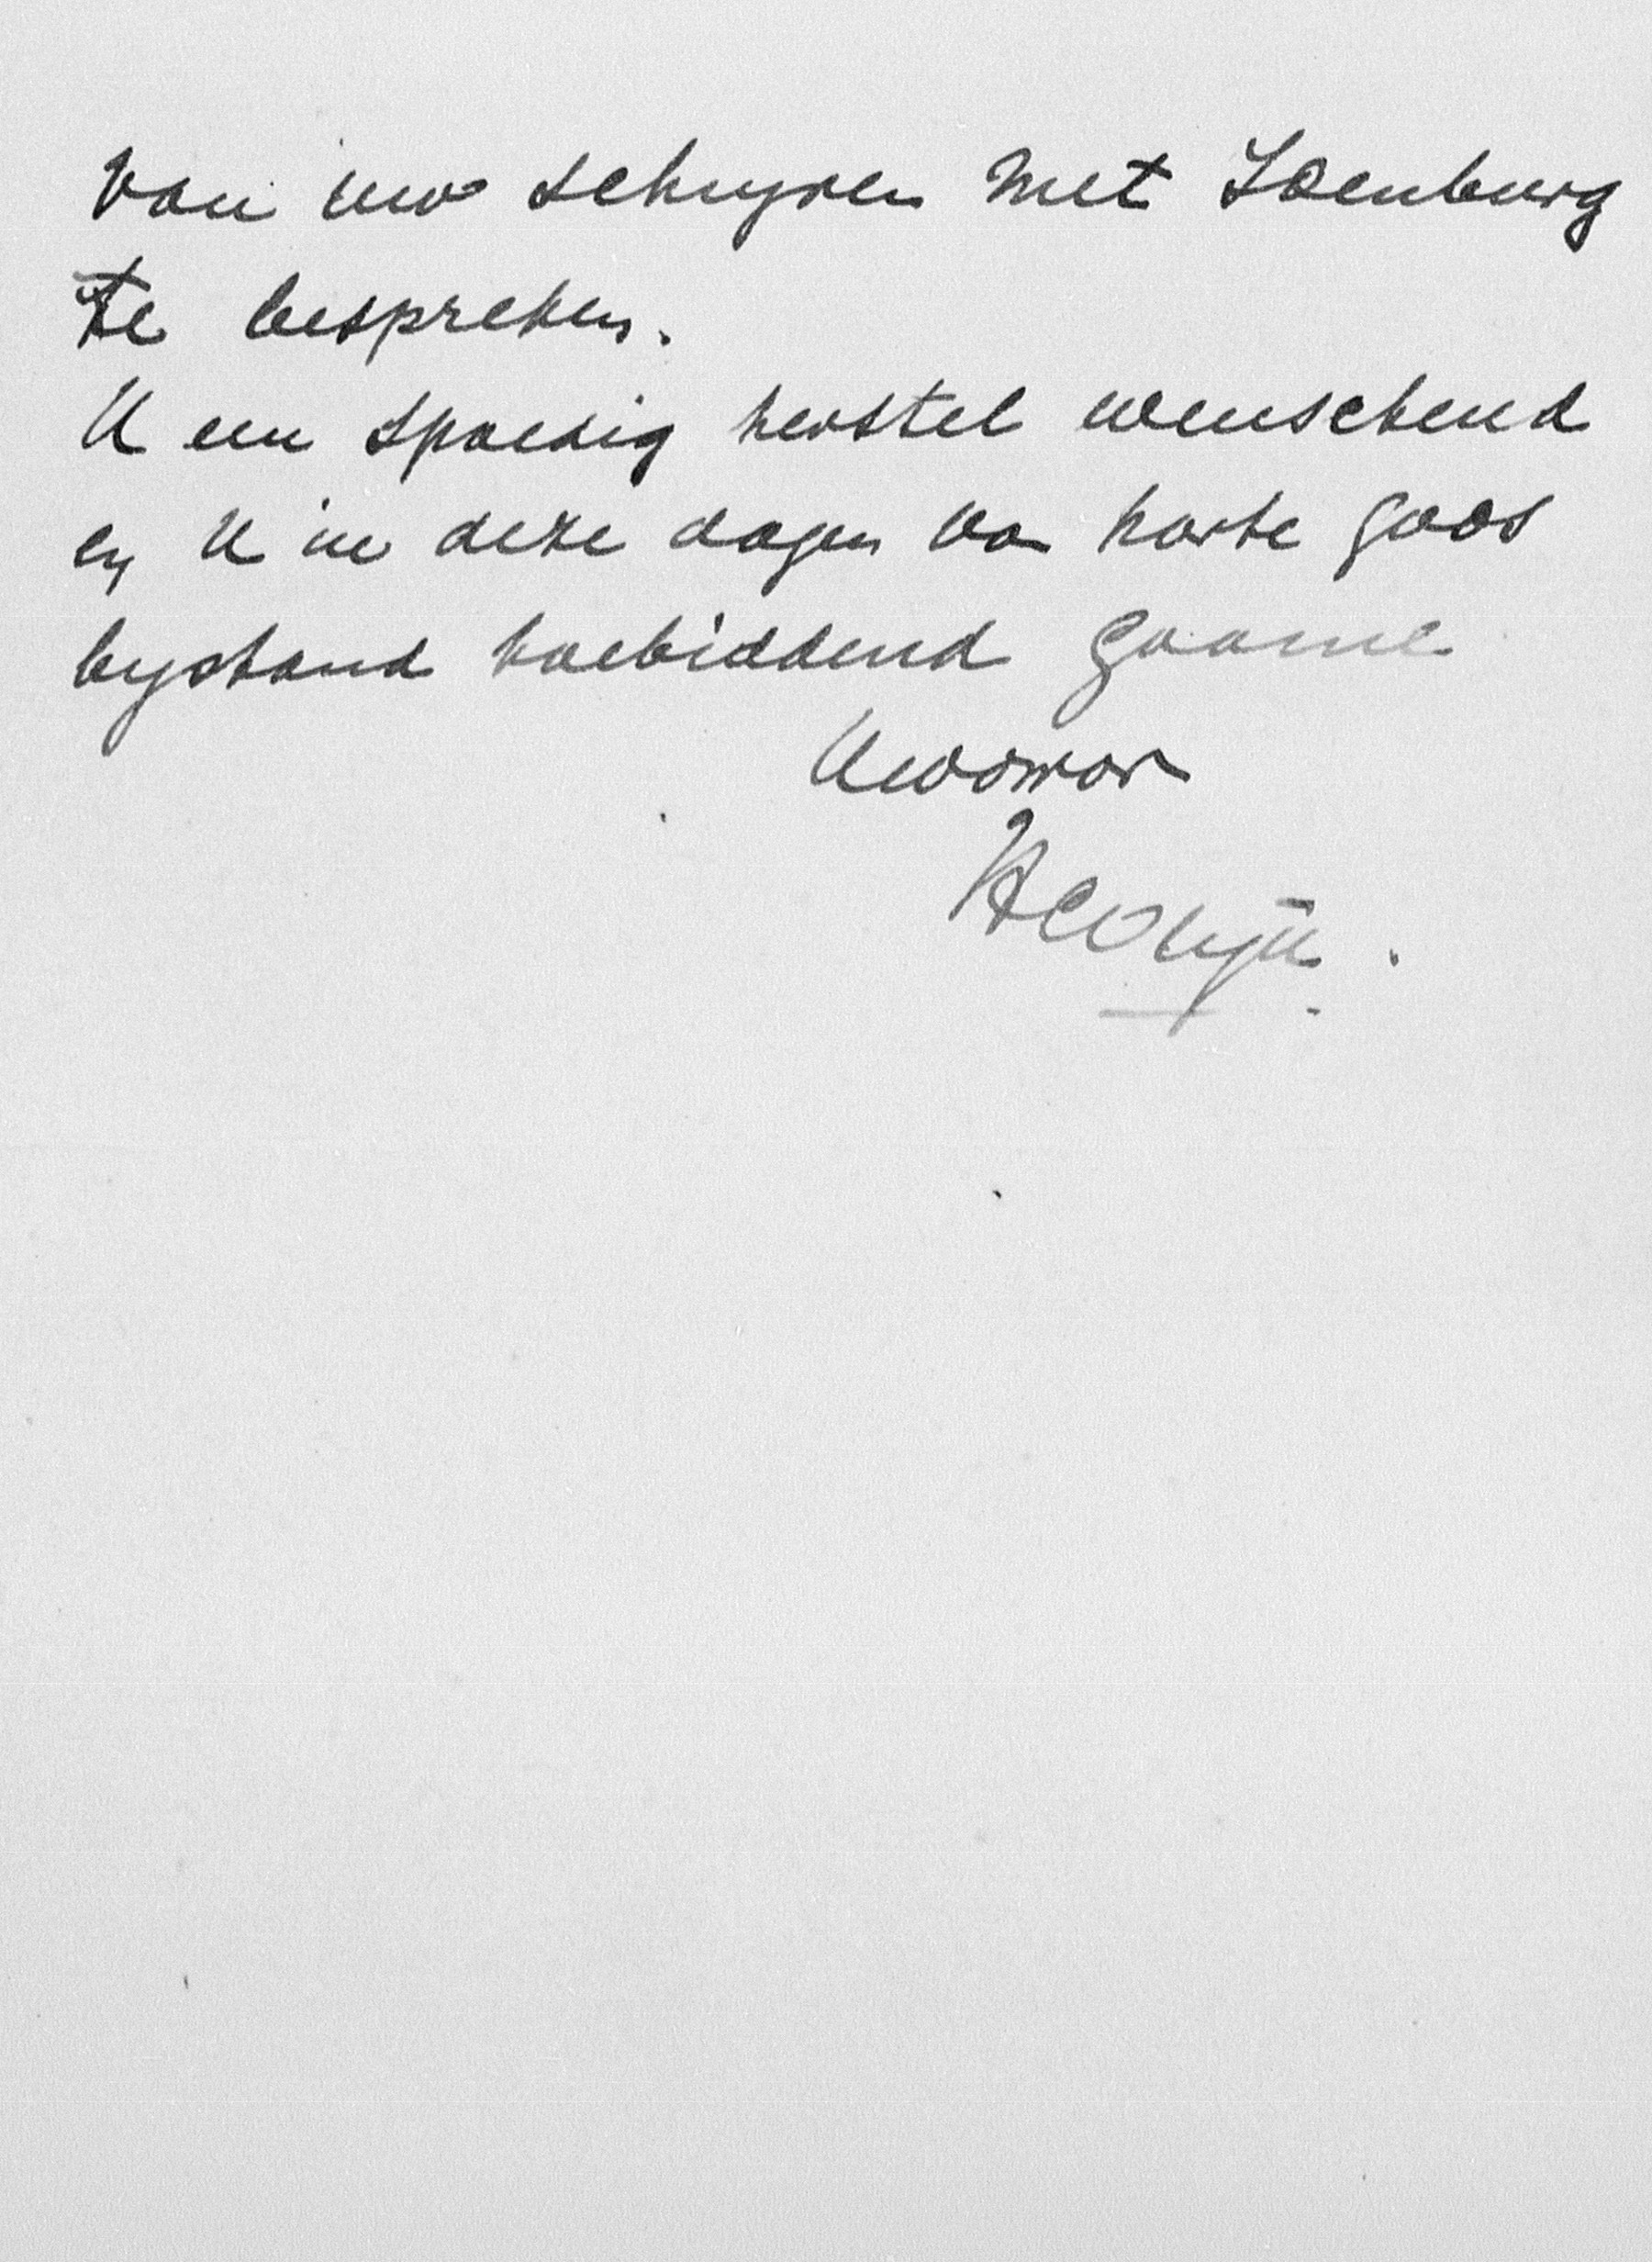 van uw schryven met Idenburg
te bespreken.
U een spoedig herstel wenschend
en U in deze dagen va harte Gods
bystand toebiddend gaarne
Uwdwdr
HColijn.